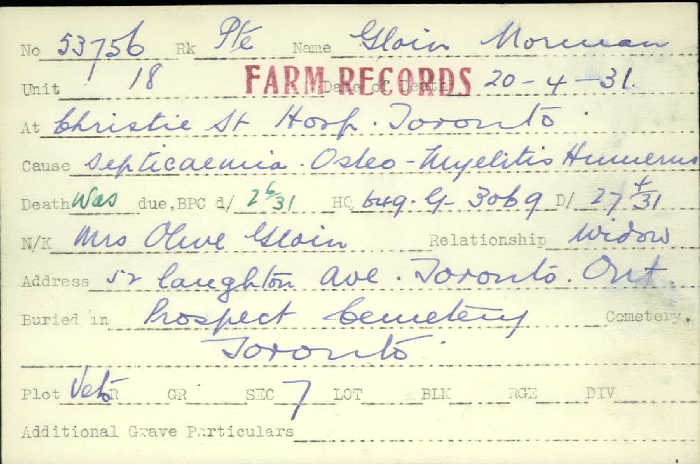 No 53756 Rk Pte Name Gloin Norman
Unit 18 FARM RECORDS Date of Death 20-4-31.
At Christie St Hosp. Toronto.
Cause Septicaemia. Osteo-Myelitis Humerus
Death Was due, BPC d/ 2 6/31 HQ 649-G-3069 D/ 27 4/31
N/K Mrs Olive Gloin Relationship Widow
Address 52 Laughton Ave. Toronto. Ont.
Buried in Prospect Cemetery Cemetery.
Toronto.
Plot Vets R GR SEC 7 LOT BLK RGE DIV
Additional Grave Particulars